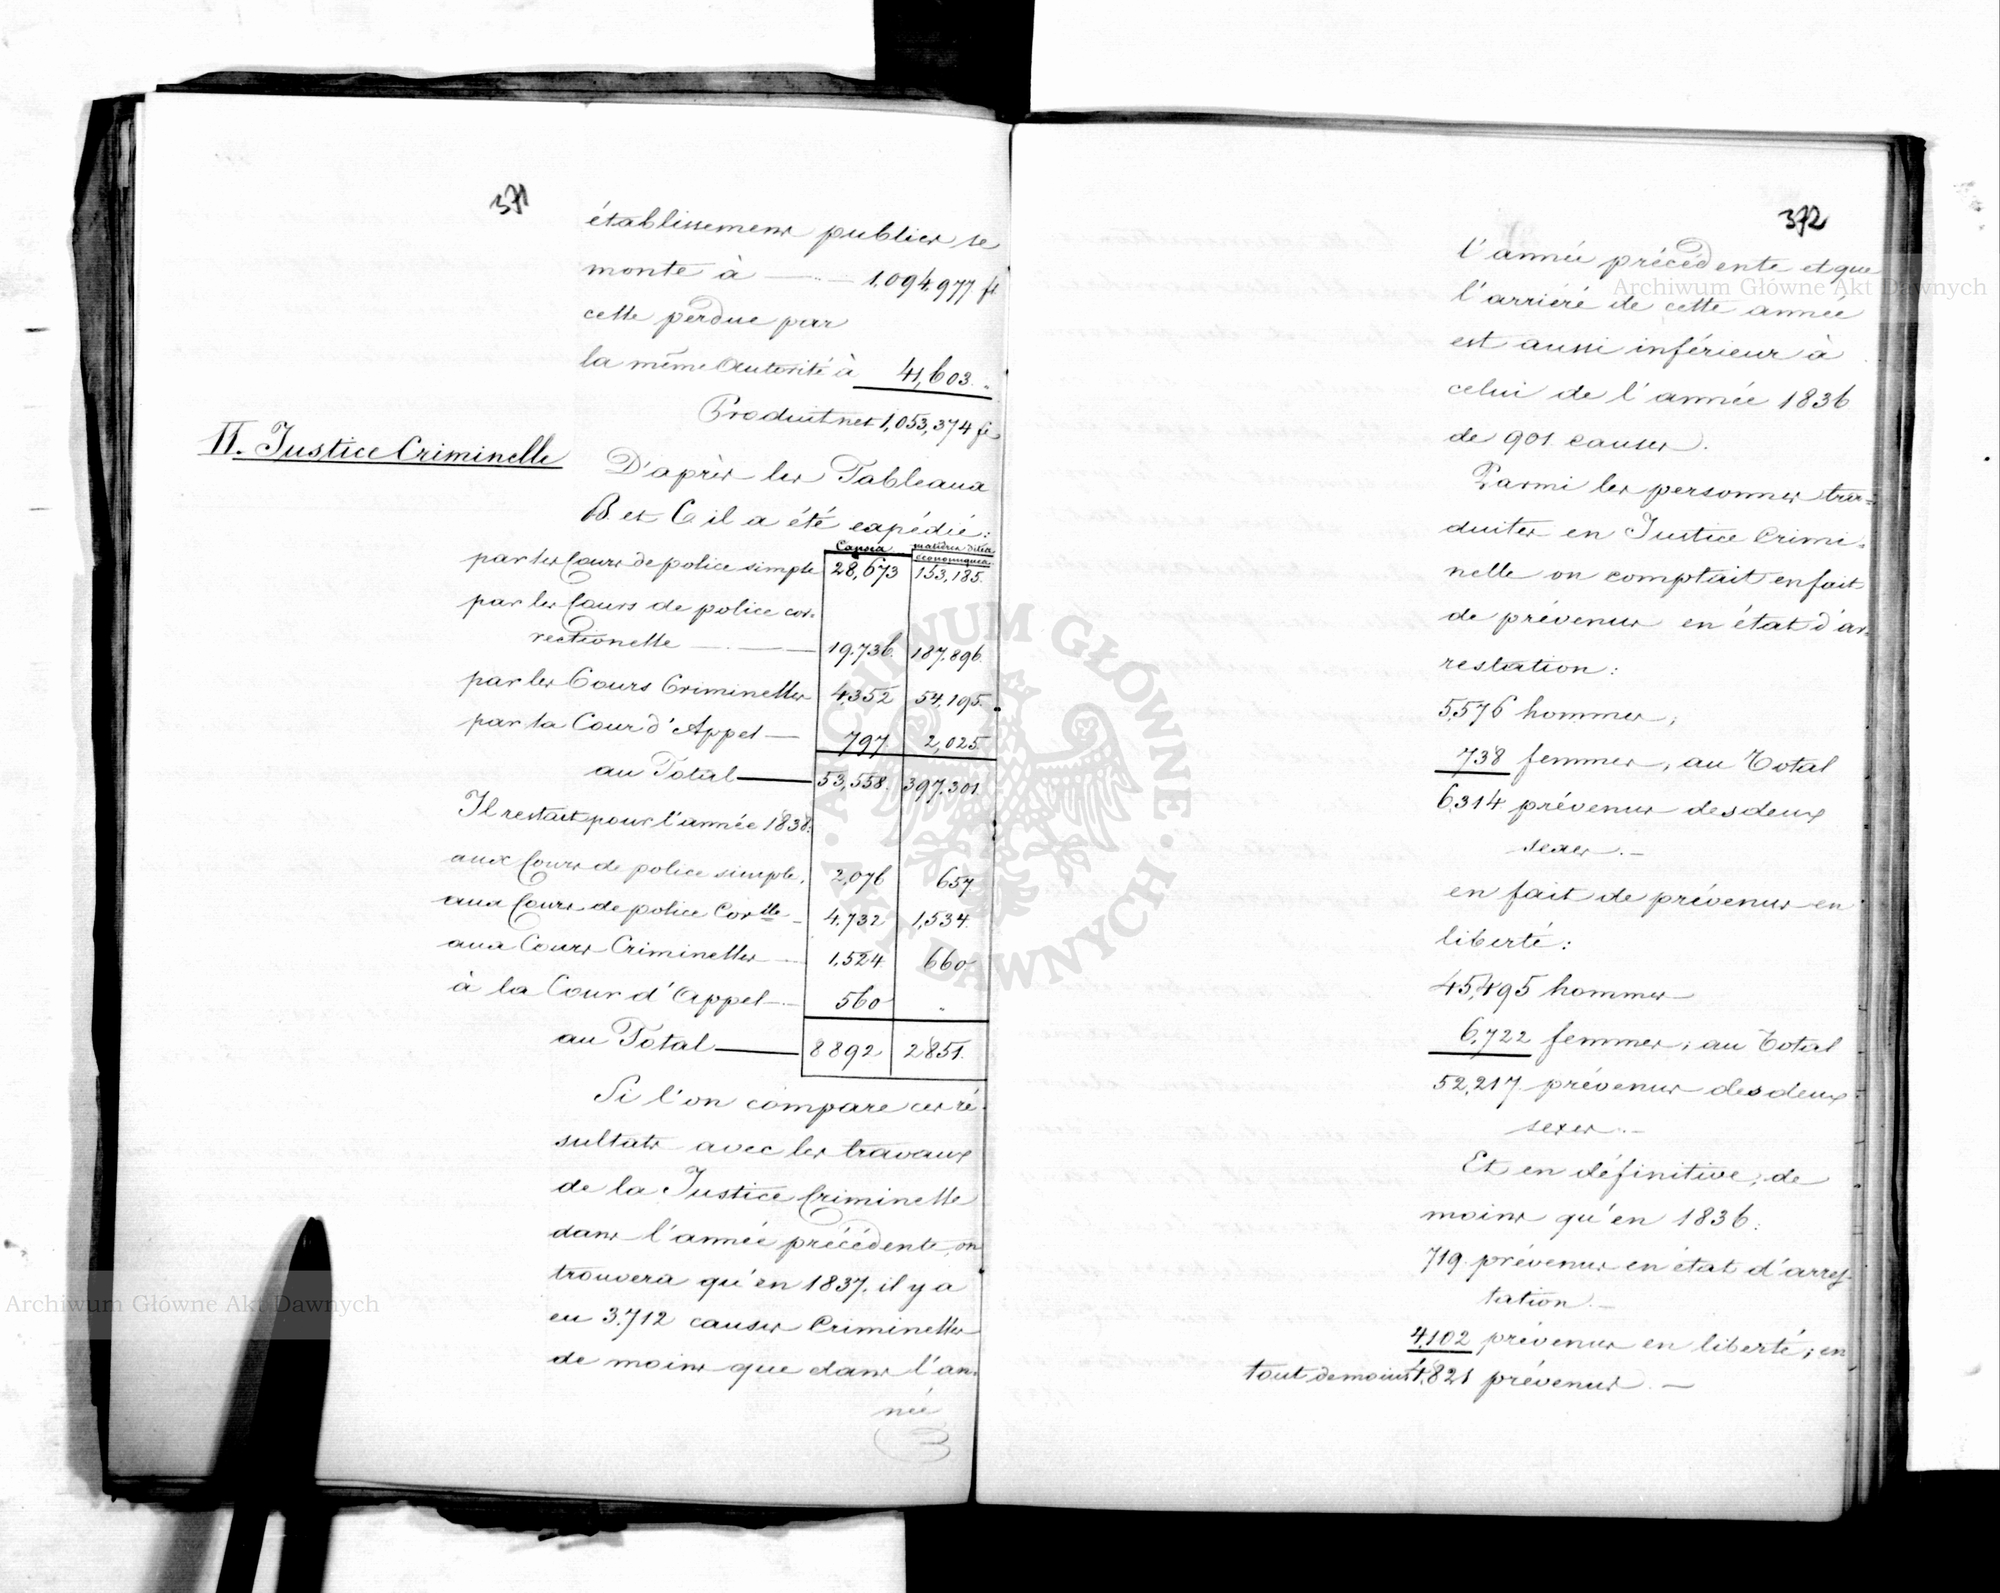 371
établissemens publics se
monte à — 1,094,977 fl
celle perdue par
la même Autorité à 41,603 "
Produit net 1,053,374 fl
II. Justice Criminelle
D'après les Tableaux
B et C il a été expédié:
Causes matières dites économiques
par les Cours de police simple 28,673 153,185.
par les Cours de police cor-
rectionelle — 19,736. 187,896.
par les Cours Criminelles 4,352 54,195.
par la Cour d'Appel — 797 2,025.
au Total — 53,558. 397,301.
Il restait pour l'année 1838:
aux Cours de police simple. 2,076 657
aux Cours de police Corlle — 4,732 1,534.
aux Cours Criminelles — 1,524 660.
à la Cour d'Appel — 560 "
au Total — 8892 2851.
Si l'on compare ces ré-
sultats avec les travaux
de la Justice Criminelle
dans l'année précédente, on
trouvera qu'en 1837, il y a
eu 3,712 causes Criminelles
de moins que dans l'an-
née
372
l'année précédente et que
l'arriéré de cette année
est aussi inférieur à
celui de l'année 1836
de 901 causes.
Parmi les personnes tra-
duites en Justice Crimi-
nelle on comptait en fait
de prévenus en état d'ar-
restation:
5,576 hommes;
738 femmes, au Total
6,314 prévenus des deux
sexes. —
en fait de prévenus en
liberté:
45,495 hommes —
6,722 femmes; au Total
52,217 prévenus des deux
sexes. —
Et en définitive, de
moins qu'en 1836:
719 prévenus en état d'arres-
tation. —
4,102 prévenus en liberté; en
tout de moins 4,821 prévenus. —
Archiwum Główne Akt Dawnych
Archiwum Główne Akt Dawnych
ARCHIWUM GŁÓWNE AKT DAWNYCH